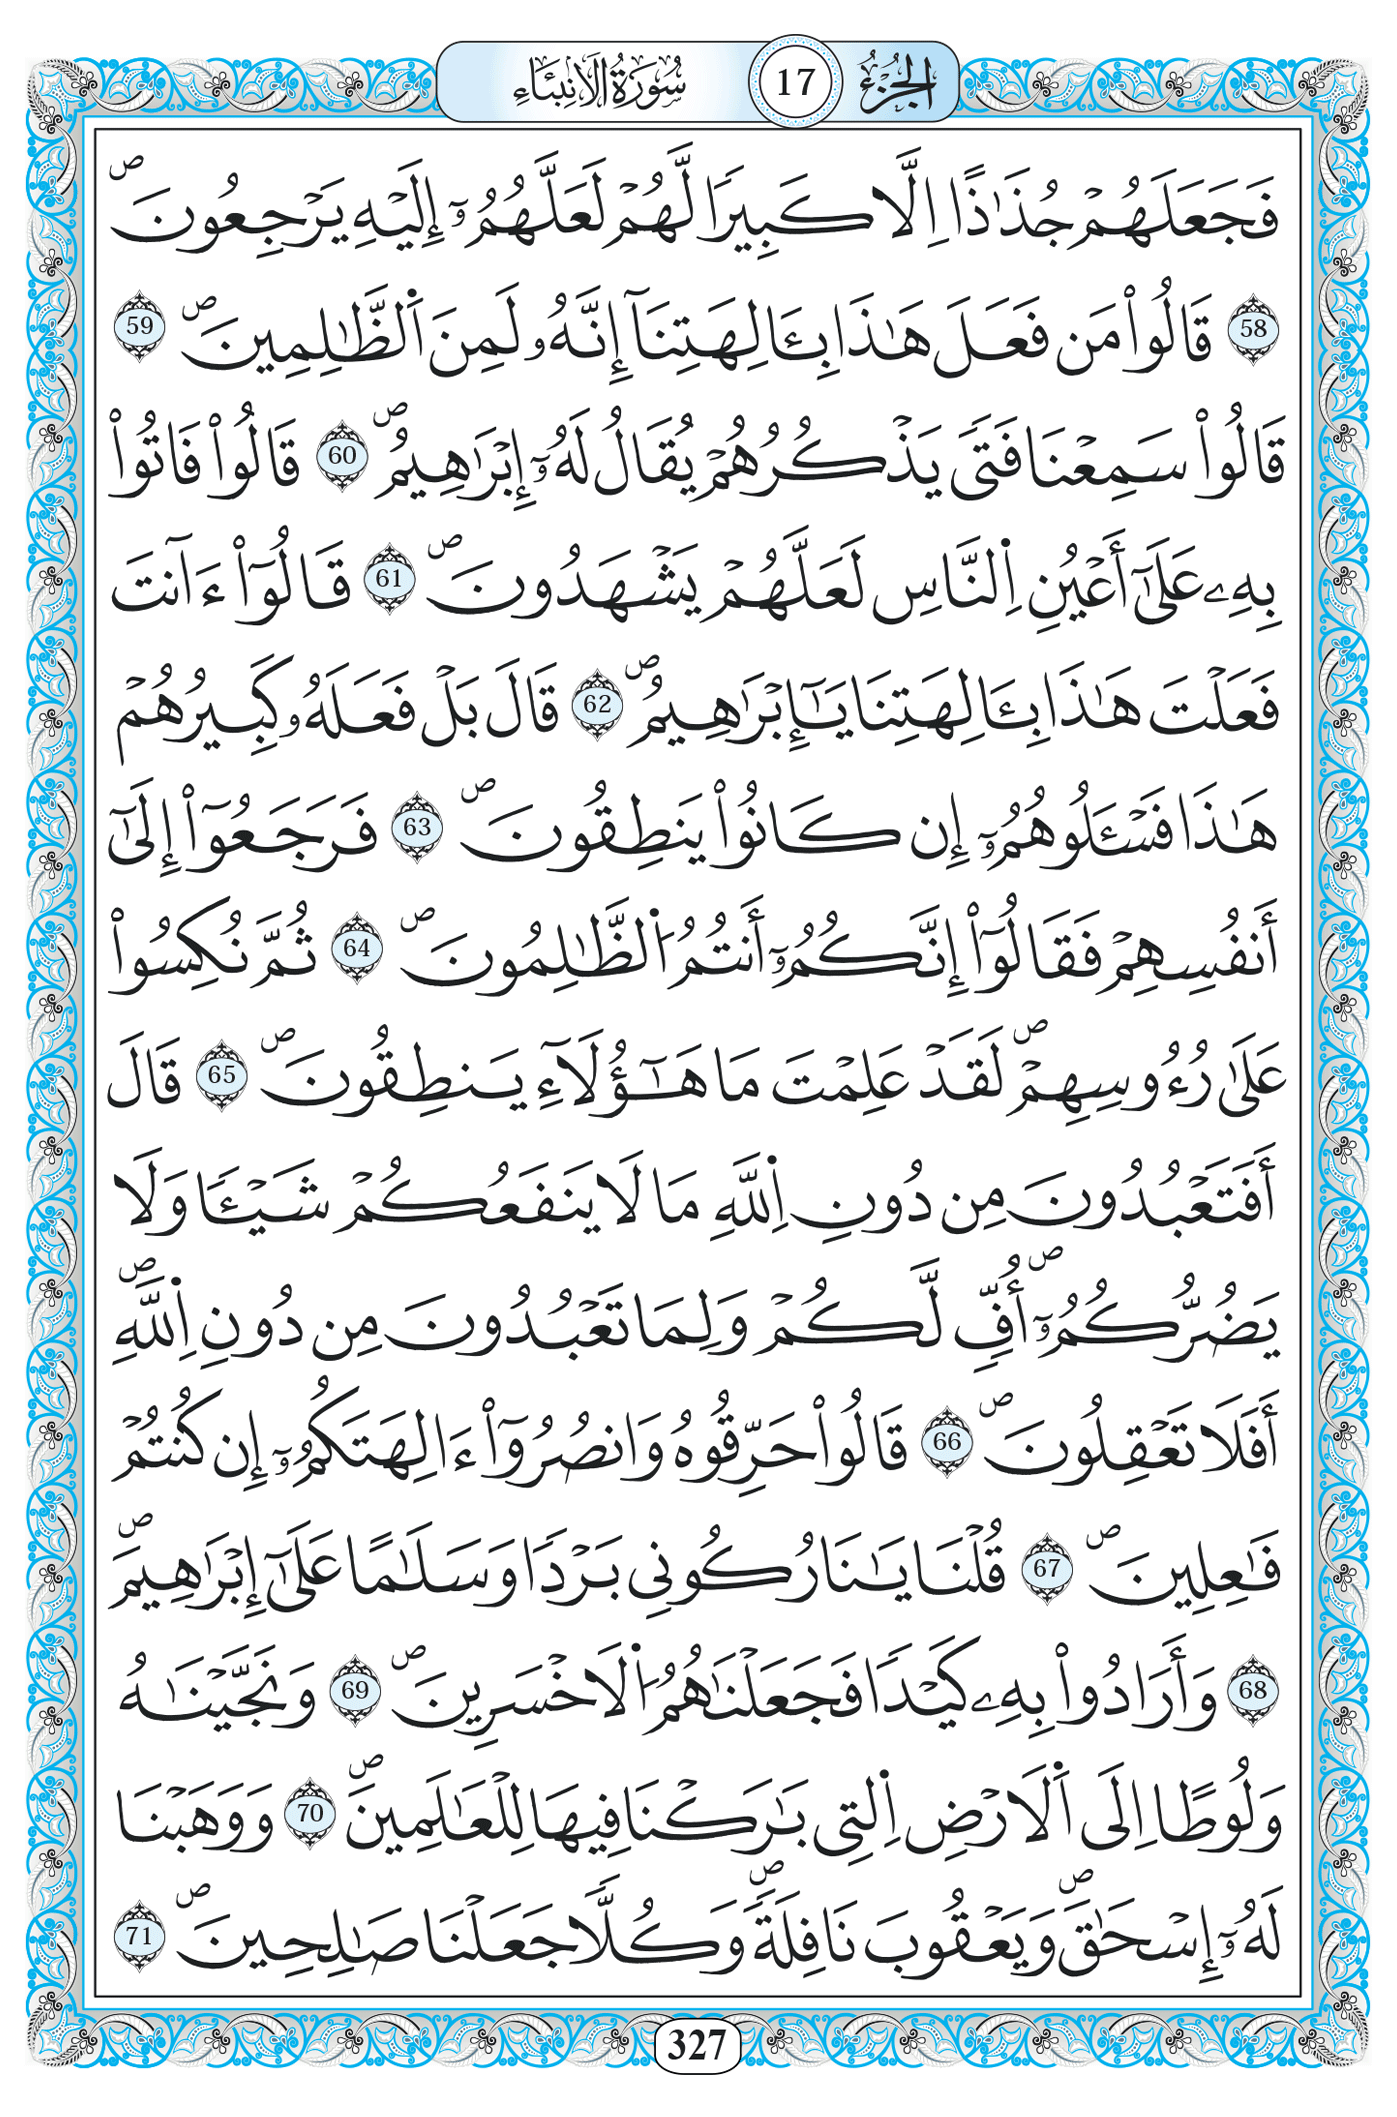 الجُزْءُ 17 سُورَةُ الَانبِئَاءِ
فَجَعَلَهُمْ جُذَٰذًا اِلَّا كَبِيرٗا لَّهُمْ لَعَلَّهُمُۥٓ إِلَيْهِ يَرْجِعُونَۖ
58 قَالُواْ مَن فَعَلَ هَٰذَا بِـَٔالِهَتِنَآ إِنَّهُۥ لَمِنَ اَ۬لظَّٰلِمِينَۖ 59
قَالُواْ سَمِعْنَا فَتيٗ يَذْكُرُهُمْ يُقَالُ لَهُۥٓ إِبْرَٰهِيمُۖ 60 قَالُواْ فَاتُواْ
بِهِۦ عَلَىٰٓ أَعْيُنِ اِ۬لنَّاسِ لَعَلَّهُمْ يَشْهَدُونَۖ 61 قَالُوٓاْ ءَآنتَ
فَعَلْتَ هَٰذَا بِـَٔالِهَتِنَا يَٰٓإِبْرَٰهِيمُۖ 62 قَالَ بَلْ فَعَلَهُۥ كَبِيرُهُمْ
هَٰذَا فَسْـَٔلُوهُمُۥٓ إِن كَانُواْ يَنطِقُونَۖ 63 فَرَجَعُوٓاْ إِلَىٰٓ
أَنفُسِهِمْ فَقَالُوٓاْ إِنَّكُمُۥٓ أَنتُمُ اُ۬لظَّٰلِمُونَۖ 64 ثُمَّ نُكِسُواْ
عَلَىٰ رُءُوسِهِمْۖ لَقَدْ عَلِمْتَ مَا هَٰٓؤُلَآءِ يَنطِقُونَۖ 65 قَالَ
أَفَتَعْبُدُونَ مِن دُونِ اِ۬للَّهِ مَا لَا يَنفَعُكُمْ شَيْـٔٗا وَلَا
يَضُرُّكُمُۥٓۖ أُفّٖ لَّكُمْ وَلِمَا تَعْبُدُونَ مِن دُونِ اِ۬للَّهِۖ
أَفَلَا تَعْقِلُونَۖ 66 قَالُواْ حَرِّقُوهُ وَانصُرُوٓاْ ءَالِهَتَكُمُۥٓ إِن كُنتُمْ
فَٰعِلِينَۖ 67 قُلْنَا يَٰنَارُ كُونِي بَرْدٗا وَسَلَٰمًا عَلَىٰٓ إِبْرَٰهِيمَۖ
68 وَأَرَادُواْ بِهِۦ كَيْدٗا فَجَعَلْنَٰهُمُ اُ۬لَاخْسَرِينَۖ 69 وَنَجَّيْنَٰهُ
وَلُوطًا اِلَى اَ۬لَارْضِ اِ۬لتِي بَٰرَكْنَا فِيهَا لِلْعَٰلَمِينَۖ 70 وَوَهَبْنَا
لَهُۥٓ إِسْحَٰقَۖ وَيَعْقُوبَ نَافِلَةٗۖ وَكُلّٗا جَعَلْنَا صَٰلِحِينَۖ 71
327